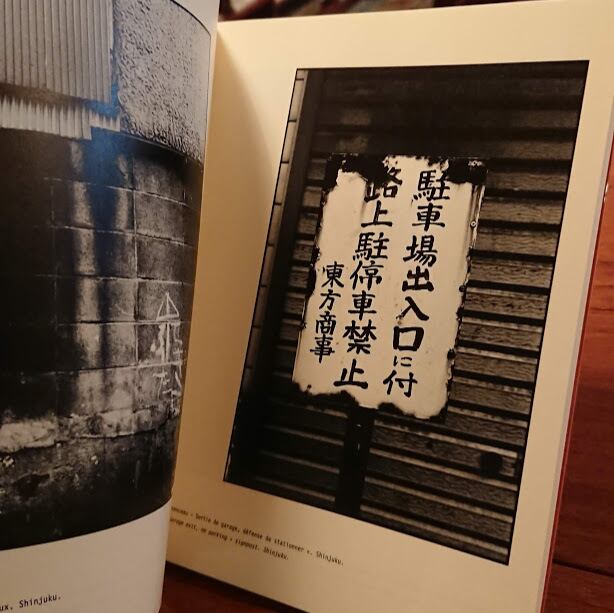 駐車場出入口に付
路上駐停車禁止
東方商事
Sortie de garage, défense de stationner ». Shinjuku.
exit, no parking » signpost. Shinjuku.
ux. Shinjuku.